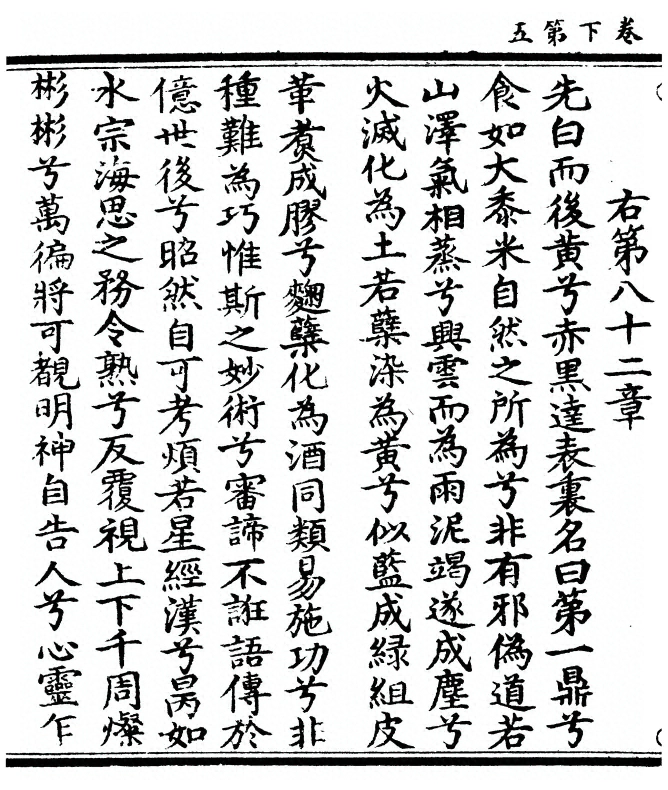 卷下第五
右第八十二章
先白而後黃兮赤黑達表裏名曰第一鼎兮
食如大黍米自然之所為兮非有邪偽道若
山澤氣相蒸兮興雲而為雨泥竭遂成塵兮
火滅化為土若蘗染為黃兮似藍成綠組皮
革煑成膠兮麴蘗化為酒同類易施功兮非
種難為巧惟斯之妙術兮審諦不誑語傳於
億世後兮昭然自可考煩若星經漢兮昺如
水宗海思之務令熟兮反覆視上下千周燦
彬彬兮萬徧將可覩明神自告人兮心靈乍